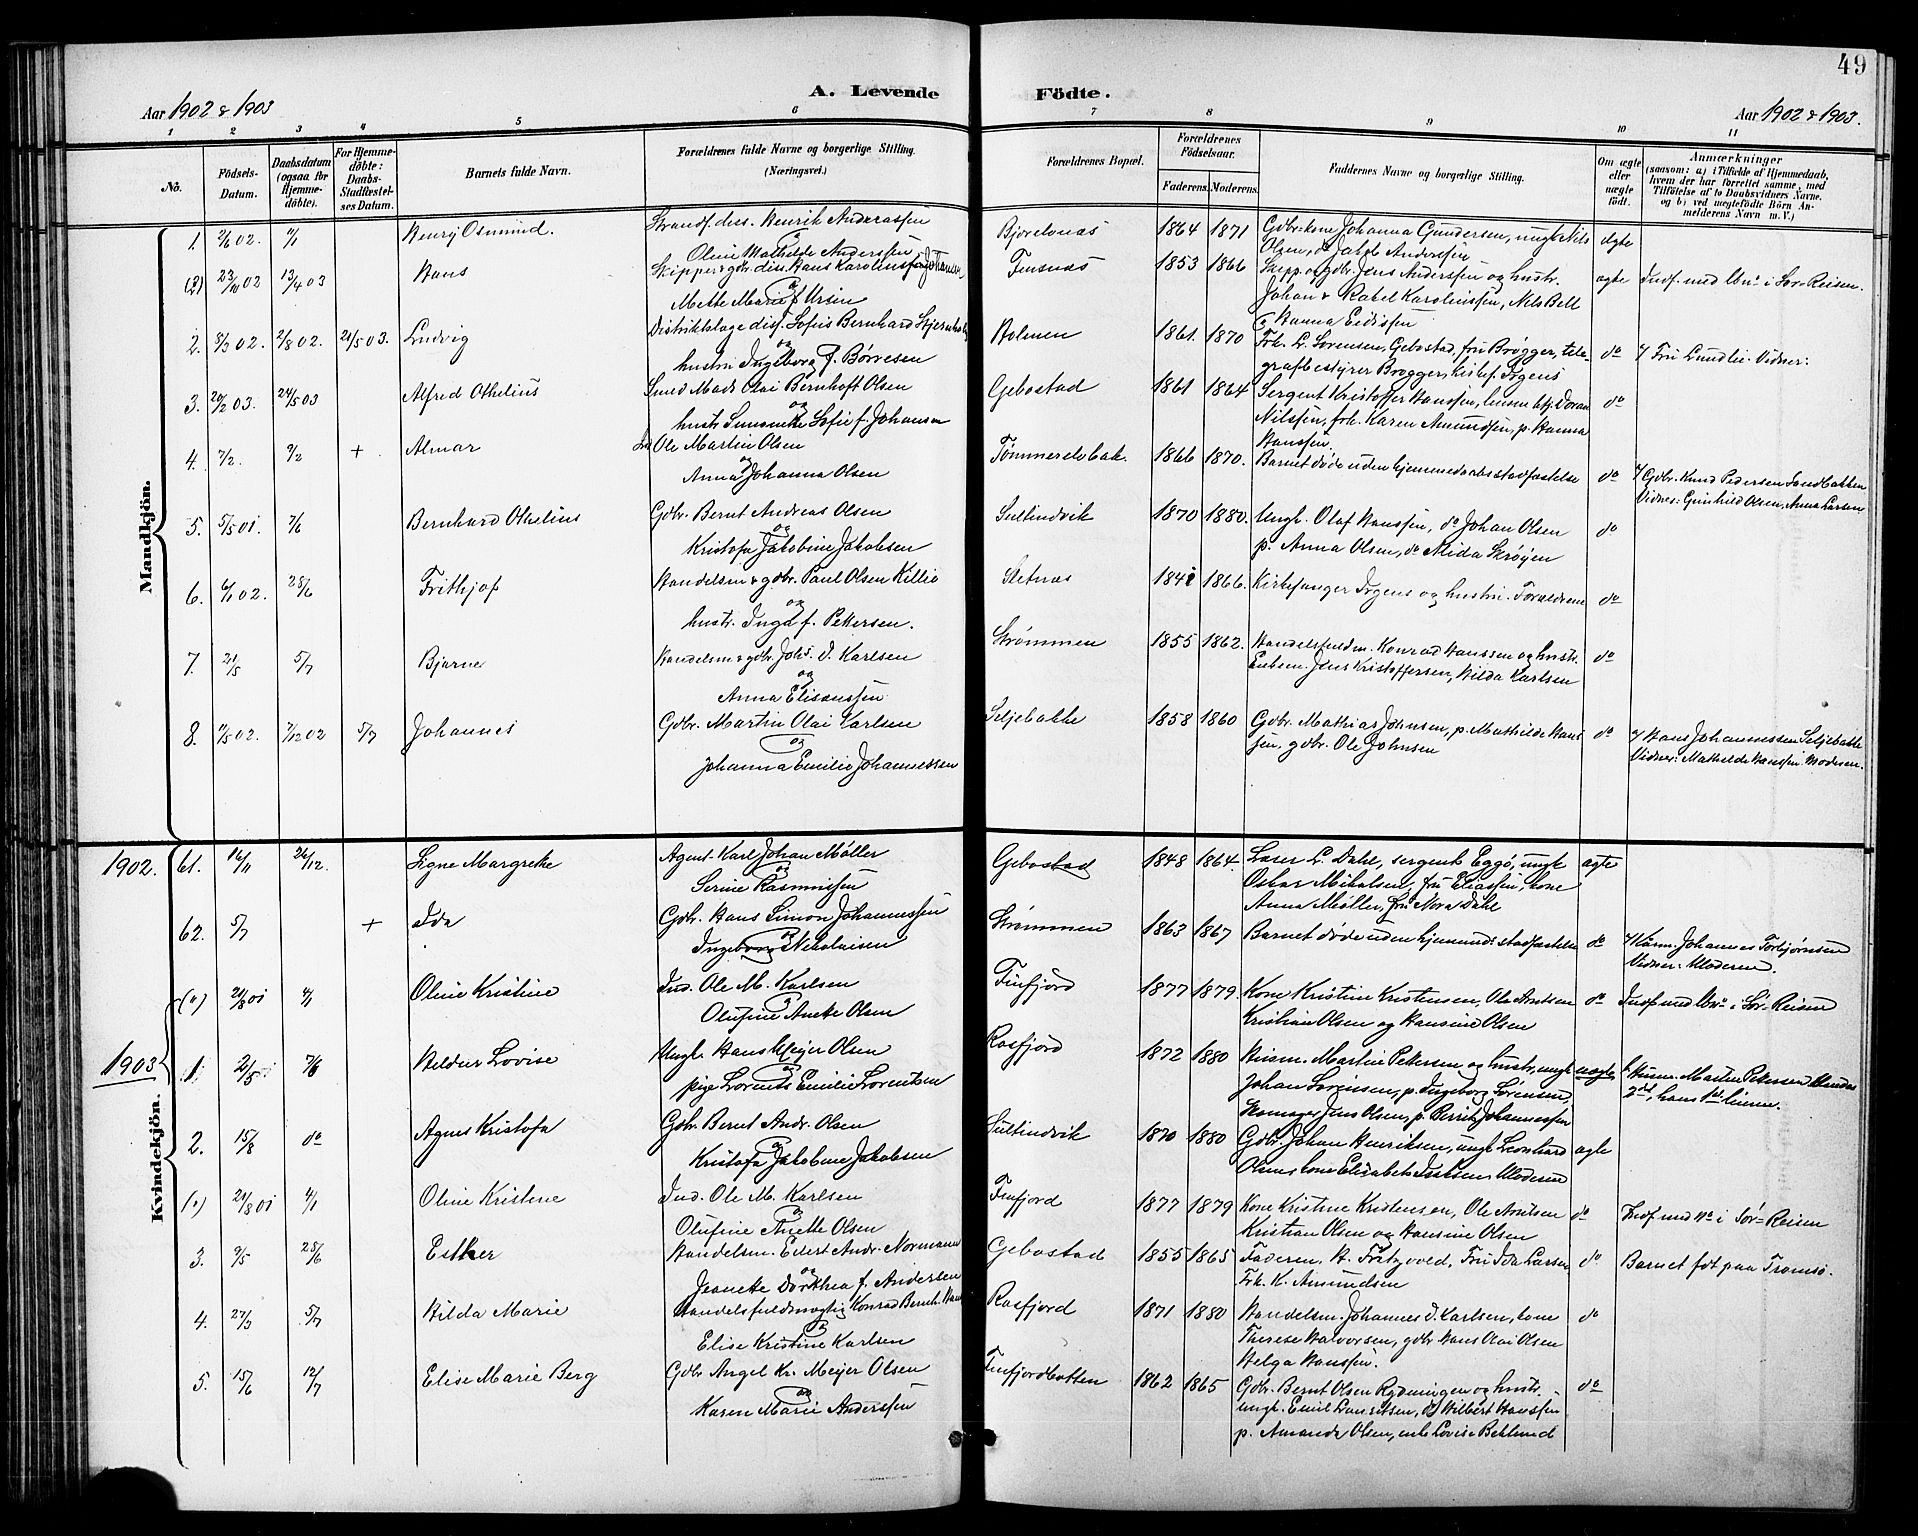 49
A. Levende Födte.
Aar 1902 & 1903
Aar 1902 & 1903.
1 2 3 4 5 6 7 8 9 10 11
No.
Födsels-Datum.
Daabsdatum (ogsaa for Hjemmedöbte).
For Hjemmedöbte: Daabs-Stadfæstelses Datum.
Barnets fulde Navn.
Forældrenes fulde Navne og borgerlige Stilling. (Næringsvei.)
Forældrenes Bopæl.
Forældrenes Födselsaar.
Faderens. Moderens.
Faddernes Navne og borgerlige Stilling.
Om ægte eller uægte födt.
Anmærkninger
(saasom: a) i Tilfælde af Hjemmedaab, hvem der har forrettet samme, med Tilföielse af to Daabsvidners Navne. og b) ved uægtefödte Börn Anmelderens Navn m. V.)
Mandkjön.
1. 2/6 02. Henry Osmund. Strandf. diss. Henrik Anderassen
og
Oline Mathilde Anderssen
Bjorelvnæs 1864 1871 Gdbr. kone Johanna Gundersen, ungk. Nils
Olsen, do Jakob Anderssen
ægte
(2) 23/10 02 13/4 03 Hans Skipper & gdbr. diss. Hans Karolinssen
og
Mette Marie f. Ursin
Finsnæs 1853 1866 Skipp. og gdbr. Jens Anderssen og hustr.
Johan & Rakel Karolinssen, Nils Bell
& Hanna Eidissen
ægte Indf. med No i Sör-Reisen.
2. 8/3 02. 2/8 02. 21/5 03. Ludvig Distriktslæge diss. Sofus Bernhard
og
hustru Ingeborg f. Börresen
Holmen 1861. 1870 Frk. L. Sörensen, Gebostad, fru Brögger, tele-
grafbestyrer Brögger, kirkef. Irgens
do v/ Fru Lundlie. Vidner:
3. 20/2 03. 24/5 03 Alfred Othelius Smed Mads Olai Bernhoft Olsen
og
hustr. Sofie f. Johansen
Gebostad 1861 1864 Sergent Kristoffer Hanssen,
Nilssen, frk. Karen Amundsen, p. Hanna
Hanssen
do
4. 7/2. 9/2 + Almar Ole Martin Olsen
og
Anna Johanna Olsen
Tömmerelvbak. 1866 1870. Barnet döde uden hjemmedaabsstadfæstelse do v/ Gdbr. Knud Pedersen Sandbakken
Vidner: Gunhild Olsen, Anna Larsen
5. 5/5 01. 7/6 Bernhard Othelius Gdbr. Bernt Andreas Olsen
og
Kristofa Jakobine Jakobsen
Sultindvik 1870 1880. Ungk. Olaf Hanssen, do Johan Olsen
p. Anna Olsen, do Alida Skröyen
do
6. 6/1 02. 28/6 Frithjof Handelsm. & gdbr. Paul Olsen Killie
og
hustr. Inga f. Pettersen.
Sletnæs 1866. Kirkesanger Irgens og hustru. Forældrene do
7. 21/5 5/7 Bjarne Handelsm & gdbr. Johs. D. Karlsen
og
Anna Elisenssen
Strömmen 1855 1862. Handelsfuldm. Konrad Hanssen og hustr.
Enkem. Jens Kristoffersen, Hilda Karlsen
do
8. 11/5 02. 7/12 02 5/7 Johannes Gdbr. Martin Olai Karlsen
og
Johanna Emilie Johannessen
Seljebakke 1858 1860 Gdbr. Mathias Johnsen, p. Mathilde Hans-
sen, gdbr. Ole Johnsen
do v/ Hans Johannessen Seljebakke
Vidner: Mathilde Hanssen Moderen.
1902.
61. 16/11 26/12. Signe Margrethe Agent Karl Johan Möller
og
Serine Rasmussen
Gebostad 1848 1864. Læser L. Dahl, sergent Eggö, ungk.
Oskar Mikalsen, fru Eliassen, kone
Anna Möller, fru Nora Dahl
ægte
62. 5/7 + Ida Gdbr. Hans Simon Johannessen
og
Ingeborg Nikolaisen
Strömmen 1863 1867 Barnet döde uden hjemmed. stadfæstelse do v/ Kårm. Johannes Torbjörnsen
Vidner: Moderen.
(1) 21/8 01 4/1 Oline Kristine Ind. Ole M. Karlsen
og
Olufine Anette Olsen
Finfjord 1877 1879 Kone Kristine Kristensen, Ole Arntsen
Kristian Olsen og Hansine Olsen
do Indf. med No i Sör-Reisen
1903
Kvindekjön.
1. 21/5 7/6 Heldur Lovise Ungk. Hans Meyer Olsen
og
pige Lorents Emilie Lorentsen
Rosfjord 1872 1880 Husm. Martin Pettersen og hustr., ungk.
Johan Sörensen, p. Ingeborg Sörensen
Skomager Jens Olsen, p. Berit Johannessen
uægte Husm. Martin Pettersen
2det, hans 1ste leierm.
2. 15/8 do Agnes Kristofa Gdbr. Bernt Andr. Olsen
og
Kristofa Jakobine Jakobsen
Sultindvik 1870 1880 Gdbr. Johan Henriksen, ungk. Leonhard
Olsen, kone Elisabet Isaksen, Moderen
ægte
(1) 21/8 01 4/1 Oline Kristine Ind. Ole M. Karlsen
og
Olufine Anette Olsen
Finfjord 1877 1879 Kone Kristine Kristensen, Ole Arntsen
Kristian Olsen og Hansine Olsen
do Indf. med No i Sör-Reisen
3. 9/5 28/6 Esther Handelsm. Edert Andr. Normann
og
Jeanette Dorthea f. Andersen
Gebostad 1855 1865 Faderen, H. Fritzvold, Fru Ida Larsen
Frk. K. Amundsen
do Barnet födt paa Tromsö.
4. 27/3 5/7 Hilda Marie Handelsfuldmægtig Konrad Bernh.
og
Elise Kristine Karlsen
Rosfjord 1871 1880 Handelsm. Johannes D. Karlsen, kone
Therese Halvorsen, gdbr. Hans Olai Olsen
Helga Hanssen.
do
5. 15/6 12/7 Elise Marie Berg Gdbr Angel Kr. Meijer Olsen
og
Karen Marie Anderssen
Finfjordbotten 1862 1865 Gdbr. Bernt Olsen Rydningen og hustr.
ungk. Emil Lauritsen, do Hilbert Hanssen
p. Amanda Olsen, enke Lovise Beklund
do